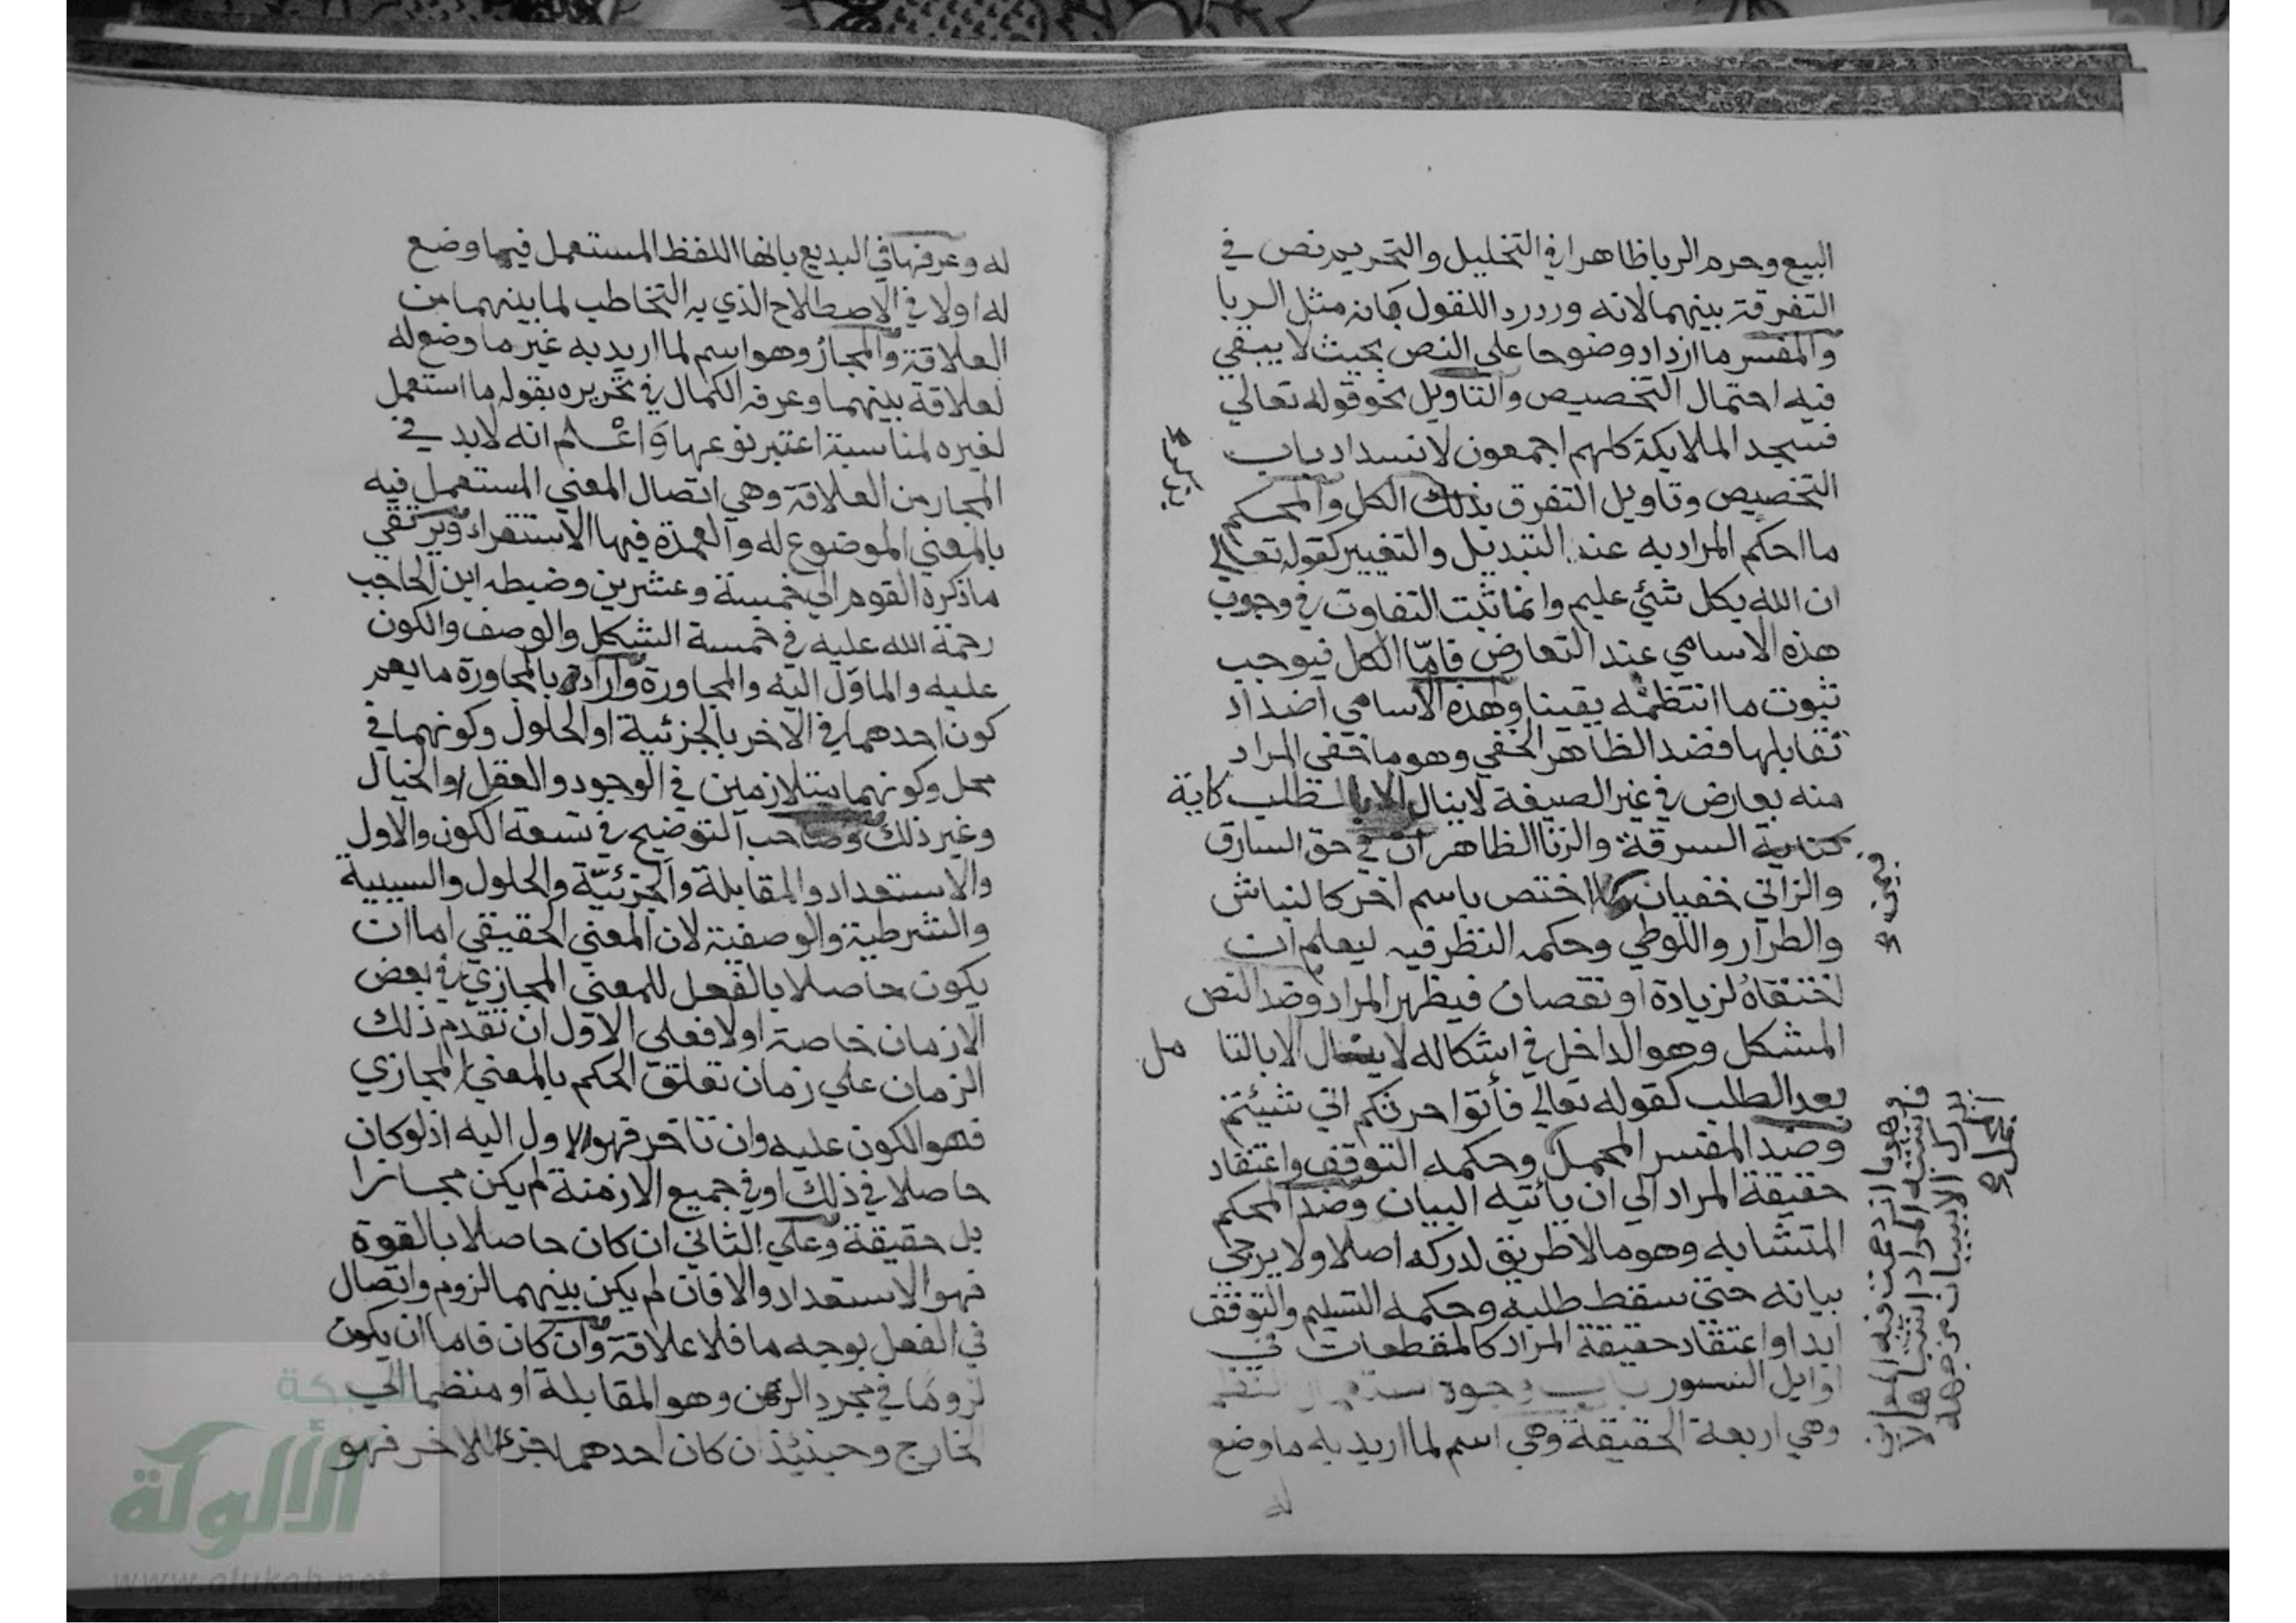 البيع وحرم الربا ظاهرا في التحليل والتحريم نص في
التفرقة بينهما لانه وردرد اللقول بانه مثل الربا
والمفسر ما ازداد وضوحا على النص بحيث لا يبقي
فيه احتمال التخصيص والتاويل نحو قوله تعالي
فسجد الملايكة كلهم اجمعون لانسداد باب
التخصيص وتاويل التفرق بذلك الكل والمحكم
ما احكم المراد به عند التبديل والتغيير كقوله تعالي
ان الله بكل شئ عليم وانما ثبت التفاوت في وجوب
هذه الاسامي عند التعارض فامّا الكل فيوجب
ثبوت ما انتظمه يقينا وهذه الاسامي اضداد
تقابلها فضد الظاهر الخفي وهو ما خفي المراد
منه بعارض في غير الصيغة لا ينال الا بالطلب كاية
السرقة والزنا الظاهران في حق السارق
والزاني خفيان اختص باسم اخر كالنباش
والطرار واللوطي وحكمه النظر فيه ليعلم ان
اختفاه لزيادة او نقصان فيظهر المراد وضد النص
المشكل وهو الداخل في اشكاله لا ينال الا بالتا مل
بعد الطلب كقوله تعالي فأتوا حرثكم اني شيئتم
وضد المفسر المجمل وحكمه التوقف واعتقاد
حقيقة المراد الي ان يأتيه البيان وضد المحكم
المتشابه وهو ما لا طريق لدركه اصلا ولا يرجي
بيانه حتي سقط طلبه وحكمه التسليم والتوقف
ابدا واعتقاد حقيقة المراد كالمقطعات في
اوايل السور باب وجوه استعمال النظم
وهي اربعة الحقيقة وهي اسم لما اريد به ما وضع
له
وهو ما ازدحمت فيه المعاني
فاشتبه المراد اشتباها لا
يدرك الا ببيان من جهة
المجمل
له وعرفها في البديع بانها اللفظ المستعمل فيما وضع
له اولا في الاصطلاح الذي به التخاطب لما بينهما من
العلاقة والمجاز وهو اسم لما اريد به غير ما وضع له
لعلاقة بينهما وعرفه الكمال في تحريره بقوله ما استعمل
لغيره لمناسبة اعتبر نوعها واعلم انه لا بد في
المجاز من العلاقة وهي اتصال المعني المستعمل فيه
بالمعني الموضوع له والعمدة فيها الاستقراء ويرتقي
ما ذكره القوم الي خمسة وعشرين وضبطه ابن الحاجب
رحمة الله عليه في خمسة الشكل والوصف والكون
عليه والماوّل اليه والمجاورة واراد بالمجاورة ما يعم
كون احدهما في الاخر بالجزئية او الحلول وكونهما في
محل وكونهما متلازمين في الوجود والعقل والخيال
وغير ذلك وصاحب التوضيح في تسعة الكون والاول
والاستعداد والمقابلة والجزئيّة والحلول والسببية
والشرطية والوصفية لان المعني الحقيقي اما ان
يكون حاصلا بالفعل للمعني المجازي في بعض
الازمان خاصة اولا فعلي الاول ان تقدم ذلك
الزمان علي زمان تعلق الحكم بالمعني المجازي
فهو الكون عليه وان تاخر فهو الاول اليه اذ لو كان
حاصلا في ذلك او في جميع الازمنة لم يكن مجازا
بل حقيقة وعلي الثاني ان كان حاصلا بالقوة
فهو الاستعداد والا فان لم يكن بينهما لزوم واتصال
في الفعل بوجه ما فلا علاقة وان كان فاما ان يكون
لزوما في مجرد الذهن وهو المقابلة او منضما الي
الخارج وحينئذ ان كان احدهما جزء الاخر فهو
شبكة
الألولة
www.alukah.net